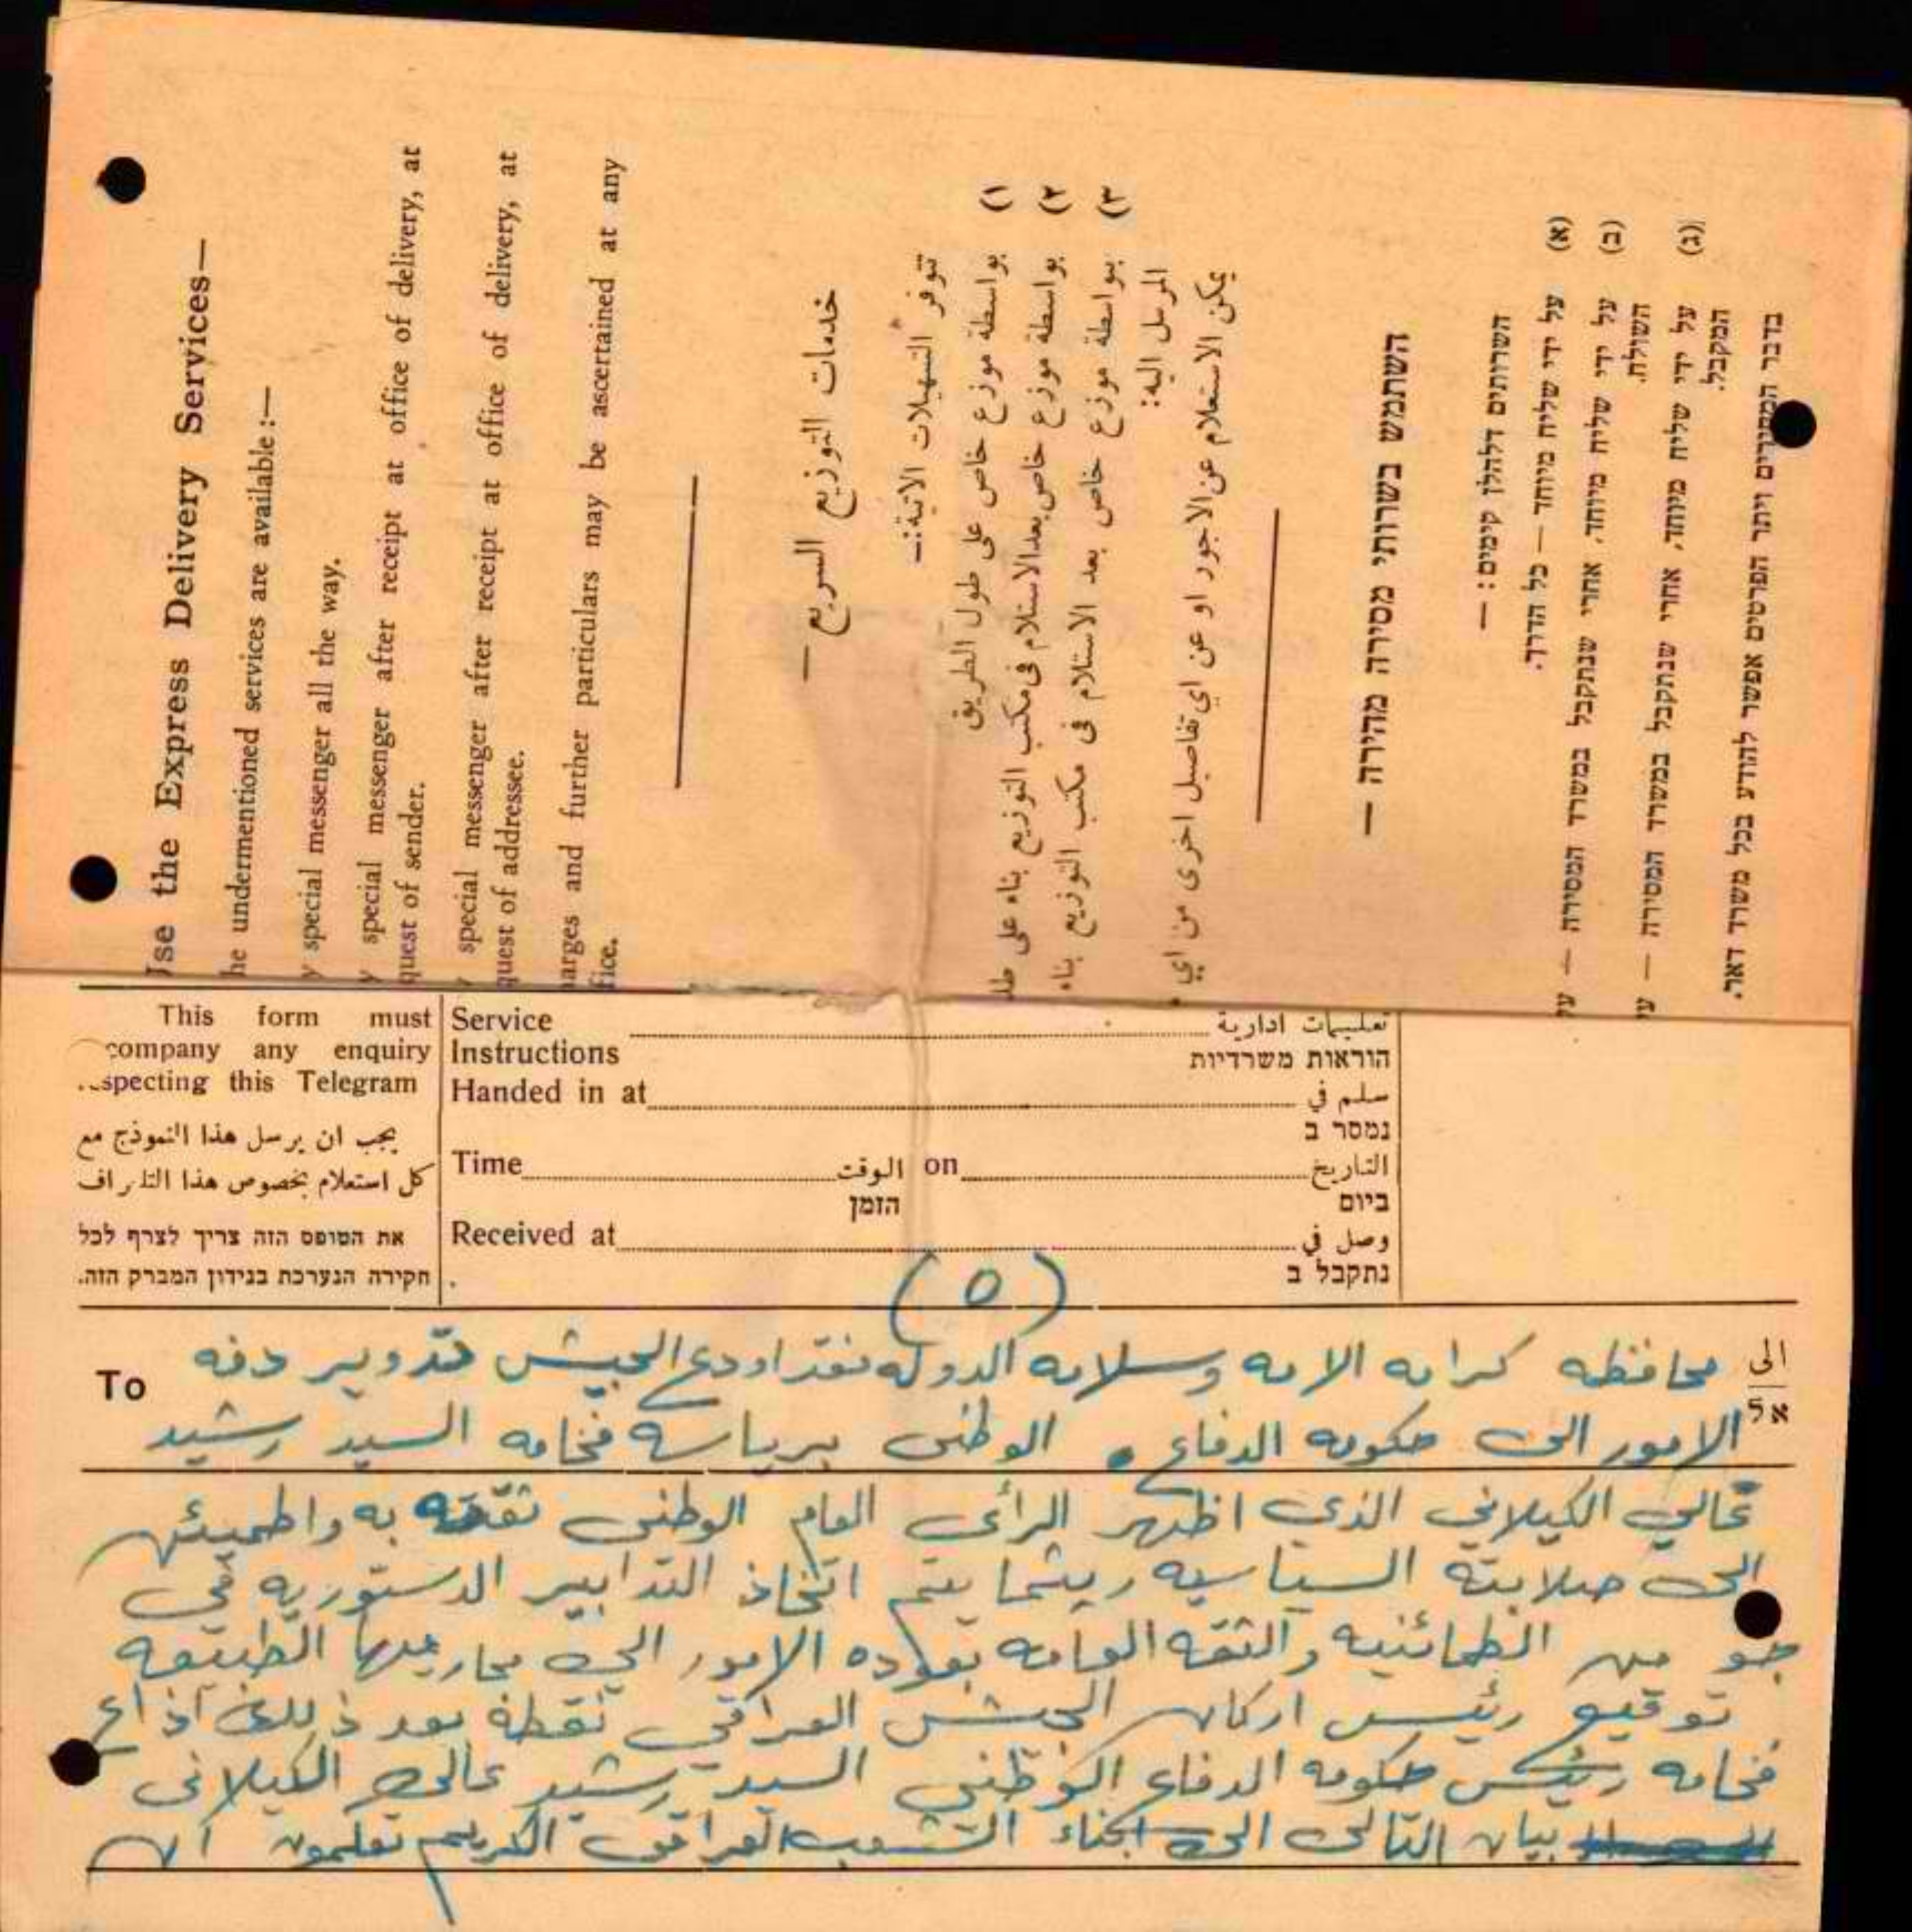 Use the Express Delivery Services—
he undermentioned services are available :—
y special messenger all the way.
y special messenger after receipt at office of delivery, at
quest of sender.
y special messenger after receipt at office of delivery, at
quest of addressee.
harges and further particulars may be ascertained at any
fice.
خدمات التوزيع السريع —
تتوفر التسهيلات الآتية :—
١) بواسطة موزع خاص على طول الطريق
٢) بواسطة موزع خاص بعد الاستلام في مكتب التوزيع بناء على طلـ
٣) بواسطة موزع خاص بعد الاستلام في مكتب التوزيع بناء
المرسل اليه:
يمكن الاستعلام عن الاجور او عن اي تفاصيل اخرى من اي
השתמש בשרותי מסירה מהירה —
השרותים דלהלן קיימים : —
(א) על ידי שליח מיוחד — כל הדרך.
(ב) על ידי שליח מיוחד, אחרי שנתקבל במשרד המסירה — עי
השולח.
(ג) על ידי שליח מיוחד, אחרי שנתקבל במשרד המסירה — עי
המקבל.
בדבר המחירים ויתר הפרטים אפשר להודע בכל משרד דאר.
This form must
company any enquiry
specting this Telegram
يجب ان يرسل هذا النموذج مع
كل استعلام بخصوص هذا التلغراف
את הטופס הזה צריך לצרף לכל
חקירה הנערכת בנידון המברק הזה.
Service تعليمات ادارية
Instructions הוראות משרדיות
Handed in at سلم في
נמסר ב
Time الوقت on التاريخ
הזמן ביום
Received at وصل في
נתקבל ב
(٥)
To الى
אל
محافظه كرامه الامه وسلامه الدوله نقد اودع الجيش تدوير دفه
الامور الى حكومه الدفاع الوطنى برياسه فخامه السيد رشيد
عالي الكيلاني الذي اظهر الرأى العام الوطنى ثقته به واطمئن
الى صلابته السياسيه ريثما يتم اتخاذ التدابير الدستوريه في
جو من الطمائنيه والثقه العامه بعوده الامور الى مجاريها الطبيعه
توقيع رئيس اركان الجيش العراقي نقطة بعد ذلك اذاع
فخامه رئيس حكومه الدفاع الوطني السيد رشيد عالى الكيلانى
بيان التالى الى ابناء الشعب العراقى الكريم تعلمون ان